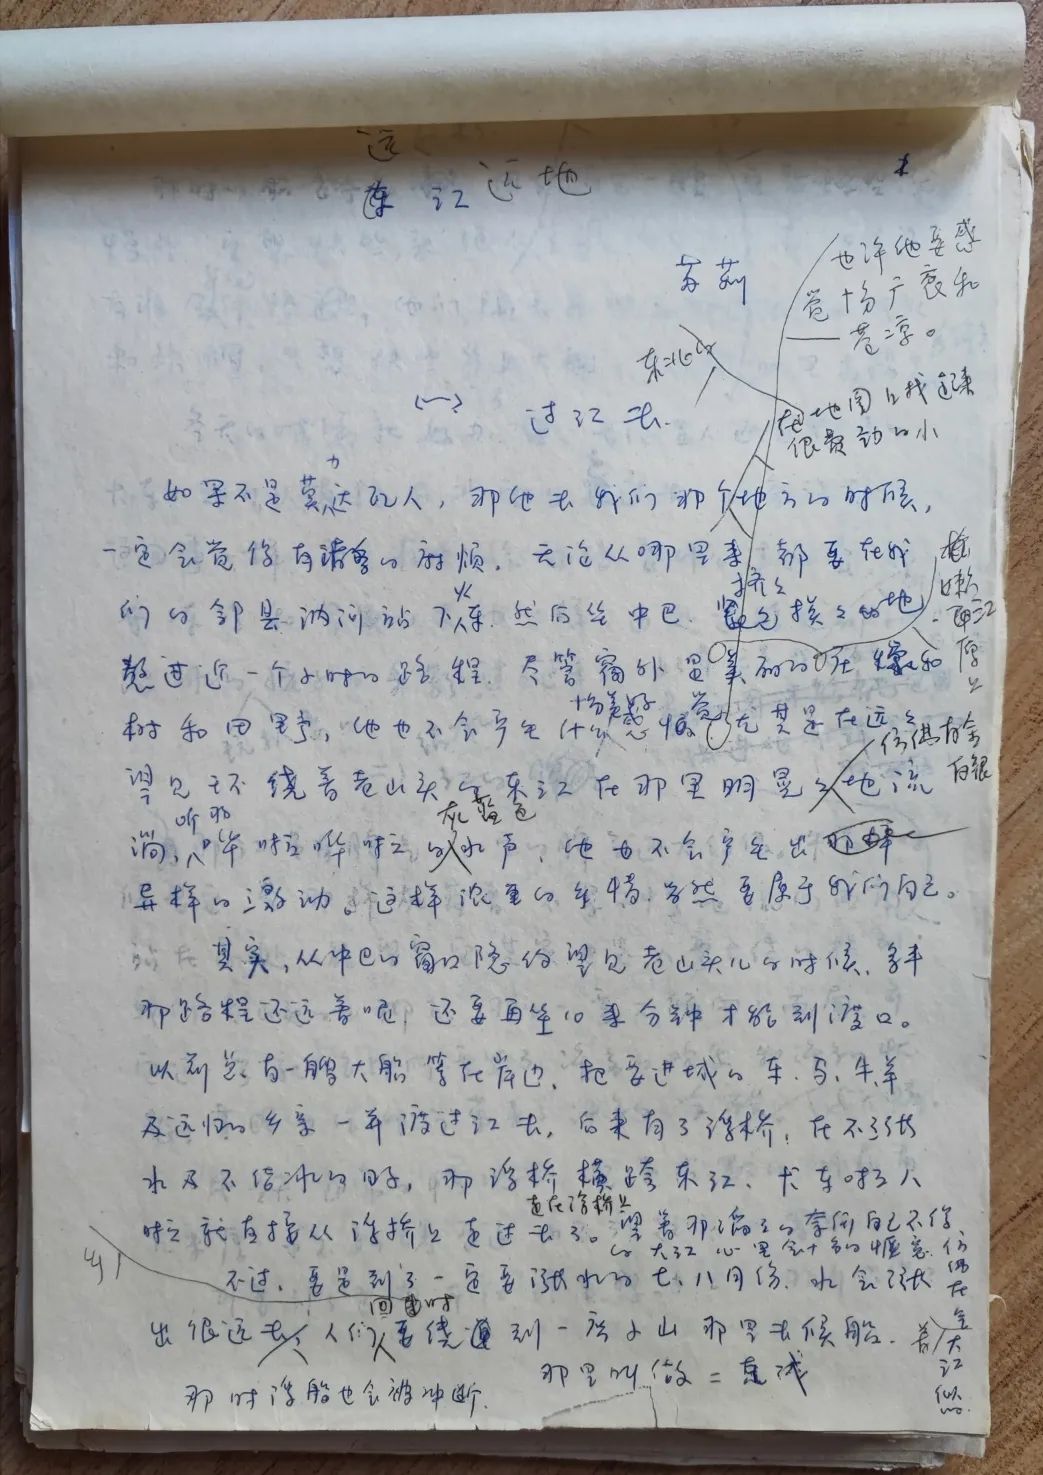 远
东江远地
苏莉
也许他要感
觉十分广袤和
苍凉。
东北的
在地图上找起来
很费劲的小
(一) 过江去
力
如果不是莫达瓦人，那他去我们那个地方的时候，
一定会觉得有诸多的麻烦。无论从哪里来，都要在我
们的邻县讷河站下火车，然后坐中巴。挤挤挨挨的地
熬过近一个小时的路程。尽管窗外是美丽的庄稼和
树和田野，他也不会产生什么感觉，尤其是在远
十分美好
望见 绕着老山头的东江在那里明晃晃地流
仿佛有金
有银
灰蓝色
听那
淌，哗啦哗啦的水声，他也不会产生出那种
异样的激动。这样浓重的乡情当然要属于我们自己。
其实，从中巴的窗口隐约望见老山头儿的时候，
那路程还远着呢，还要再坐10来分钟才能到渡口。
以前总有一艘大船等在岸边，把要进城的车、马、牛、羊
及远归的乡亲一并渡过江去，后来有了浮桥，在不涨
水及不结冰的日子，那浮桥横跨东江、大车啦人
啦就直接从浮桥上走过去了。
走在浮桥上
望着那滔滔的
的大江心里会十分的惬意，仿
佛在
大江
似的。
不过，要是到了一定要涨水的七、八月份，水会涨
出很远去，人们要绕道到一座小山那里去候船。
回来时
那里叫做二克浅
那时浮船也会被冲断。